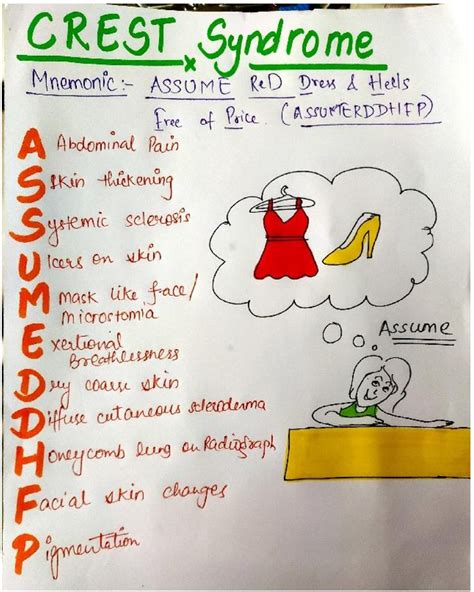 CREST Syndrome
Mnemonic:- ASSUME ReD Dress & Heels
Free of Price. (ASSUMERDDHFP)
Abdominal Pain
Skin thickening
Systemic sclerosis
Ulcers on skin
Mask like face/
Microstomia
Exertional
Breathlessness
Dry coarse skin
Diffuse cutaneous scleroderma
Honeycomb lung on Radiograph
Facial skin changes
Pigmentation
Assume